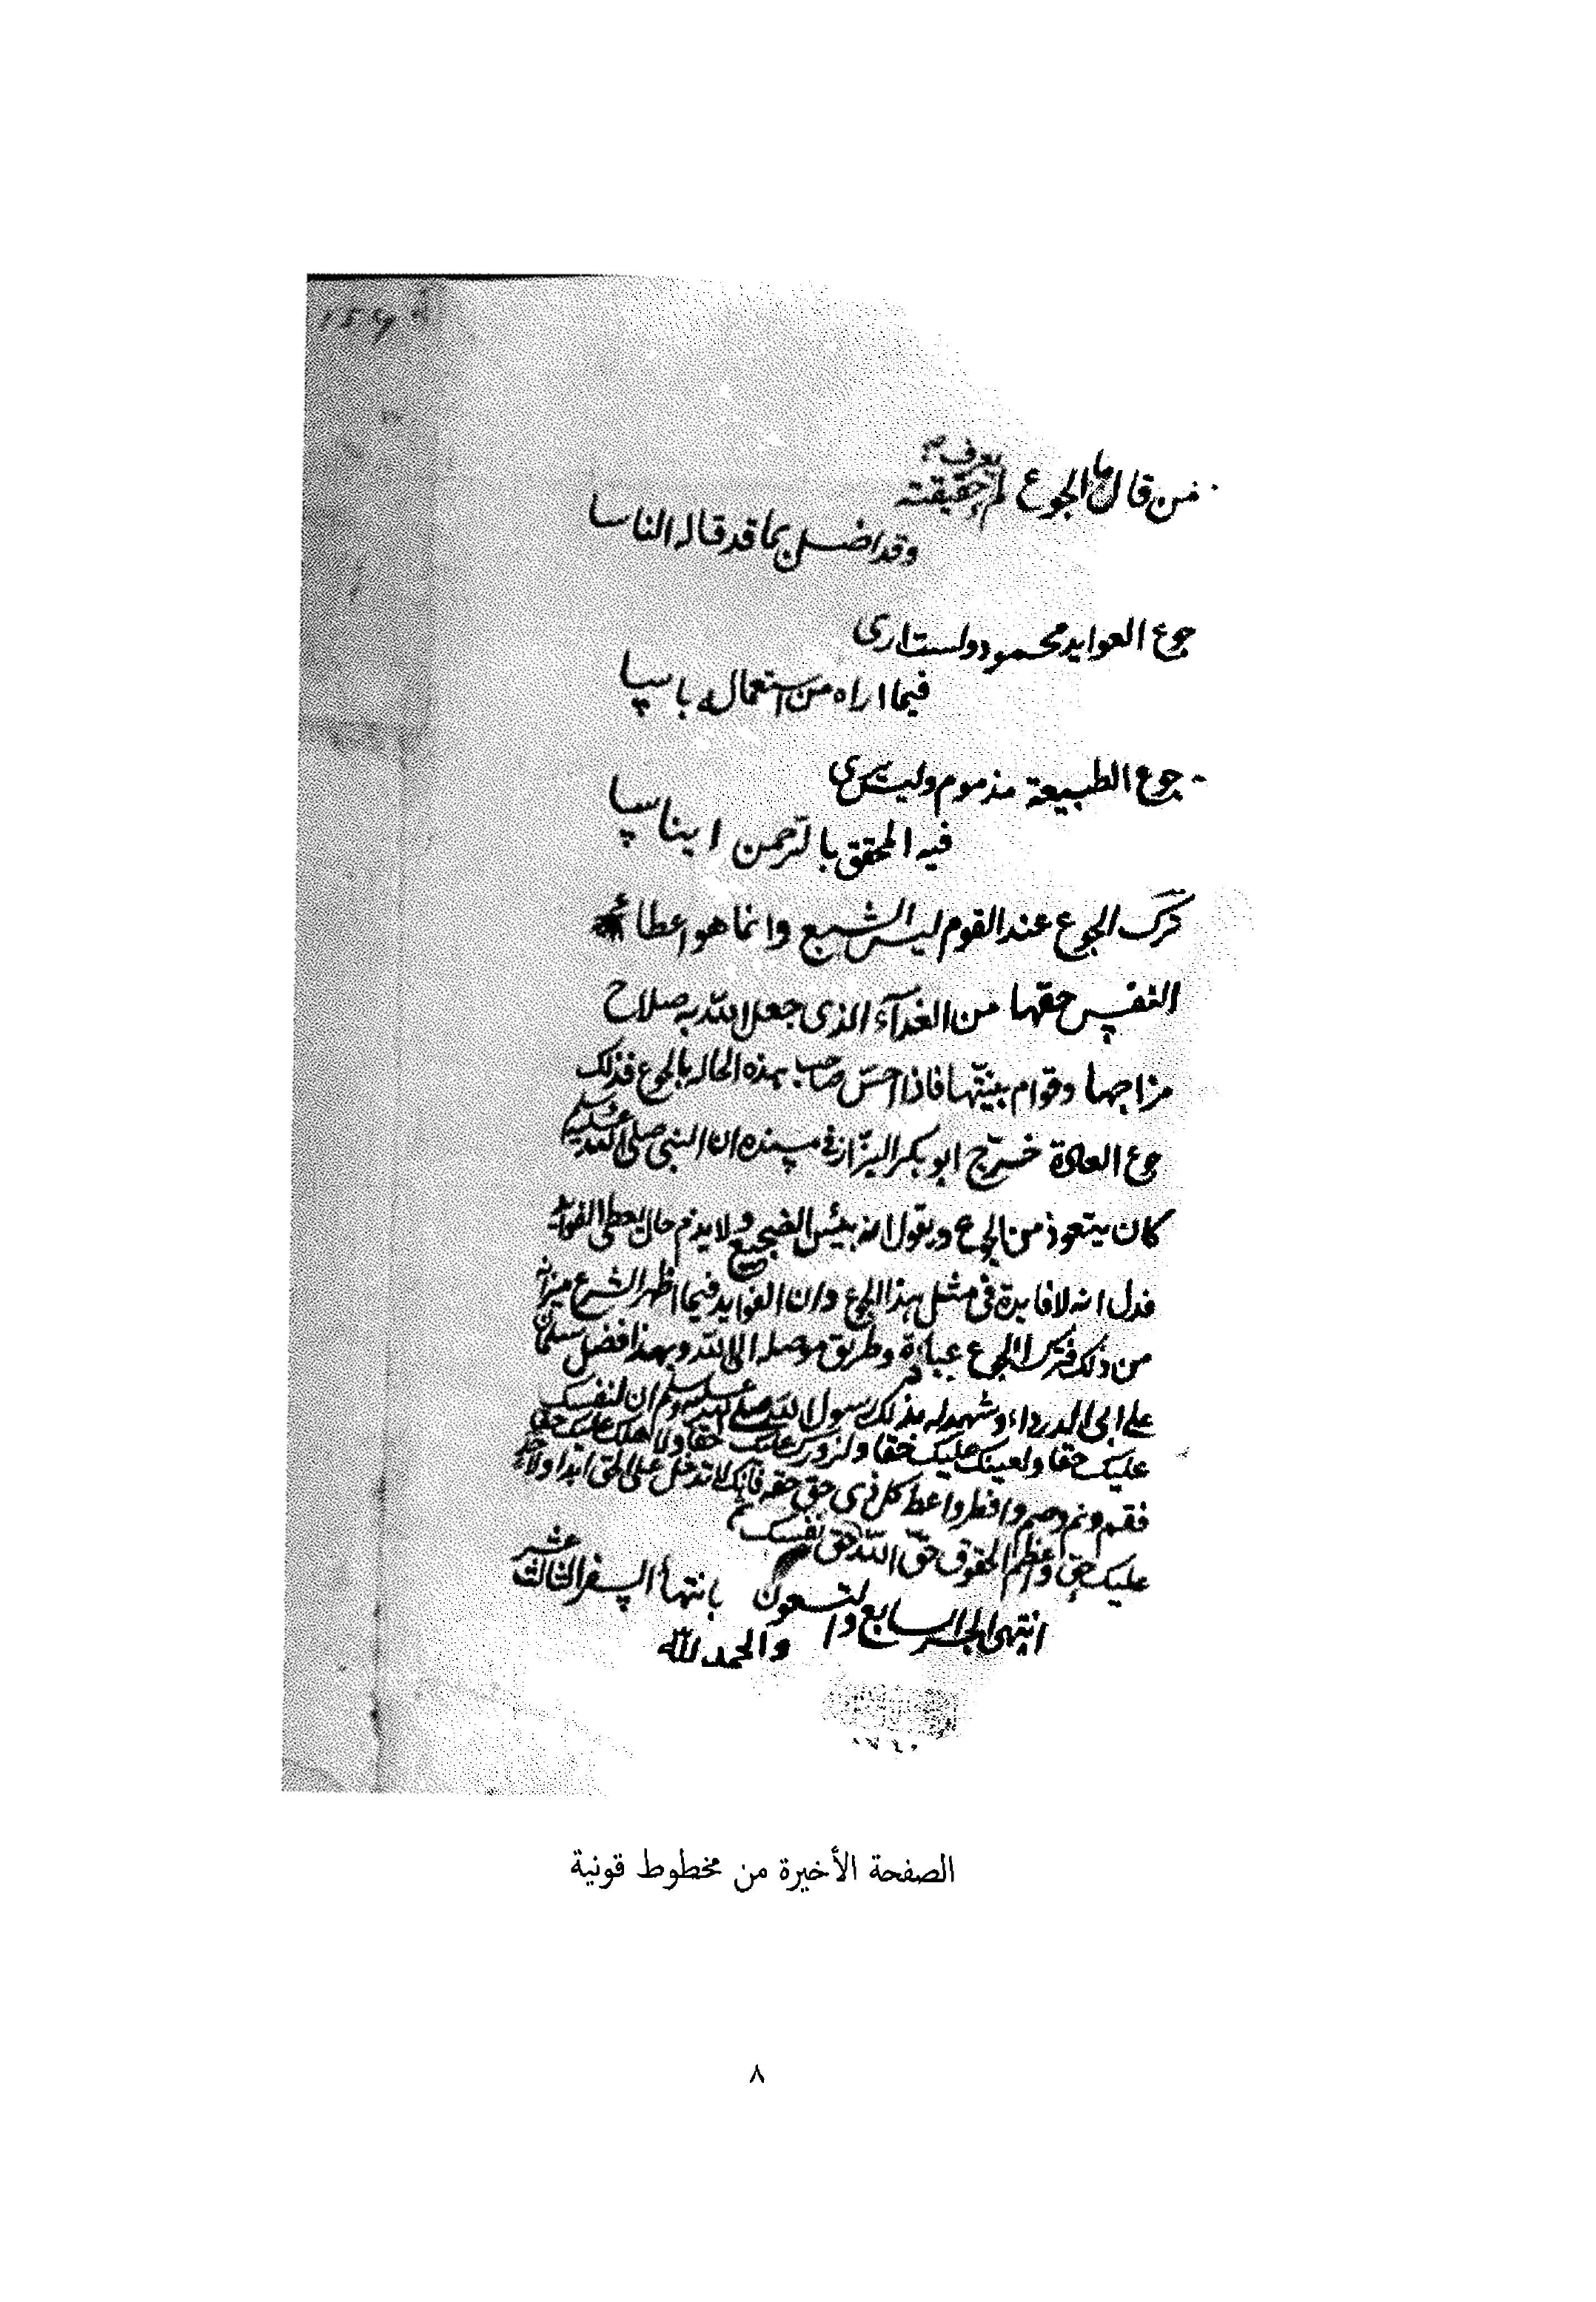 من قال ما الجوع لم يعرف حقيقته
وقد اضل بما قد قاله الناسا
جوع العوايد محمود ولست ارى
فيما اراه من استعماله باسا
جوع الطبيعة مذموم وليس يرى
فيه المحقق بالرحمن ايناسا
ترك الجوع عند القوم ليس الشبع وانما هو اعطاء
النفس حقها من الغذآء الذى جعل الله به صلاح
مزاجها وقوام بنيتها فاذا احسّ صاحب هذه الحاله بالجوع فذلك
جوع العادة خرّج ابو بكر البزّار فى مسنده ان النبى صلى الله عليه وسلم
كان يتعوذ من الجوع ويقول انه بيئس الضجيع ولا يذم حال يعطى الفوايد
فدل انه لا فايدة فى مثل هذا الجوع وان الفوايد فيما اظهر الشرع ميزانه
من ذلك فترك الجوع عبادة وطريق موصله الى الله وبهذا فضل سلمان
على ابى الدرداء وشهد له بذلك رسول الله صلى الله عليه وسلم ان لنفسك
عليك حقا ولعينك عليك حقا ولزورك عليك حقا ولاهلك عليك حقا
فقم ونم وصم وافطر واعط كل ذى حق حقه فانك لا تدخل على الحق ابدا ولاحد
عليك حق واعظم الحقوق حقّ الله حق نفسك
انتهى الجز السابع والتسعون بانتهآ السفر الثالث عشر
والحمد لله
الصفحة الأخيرة من مخطوط قونية
٨